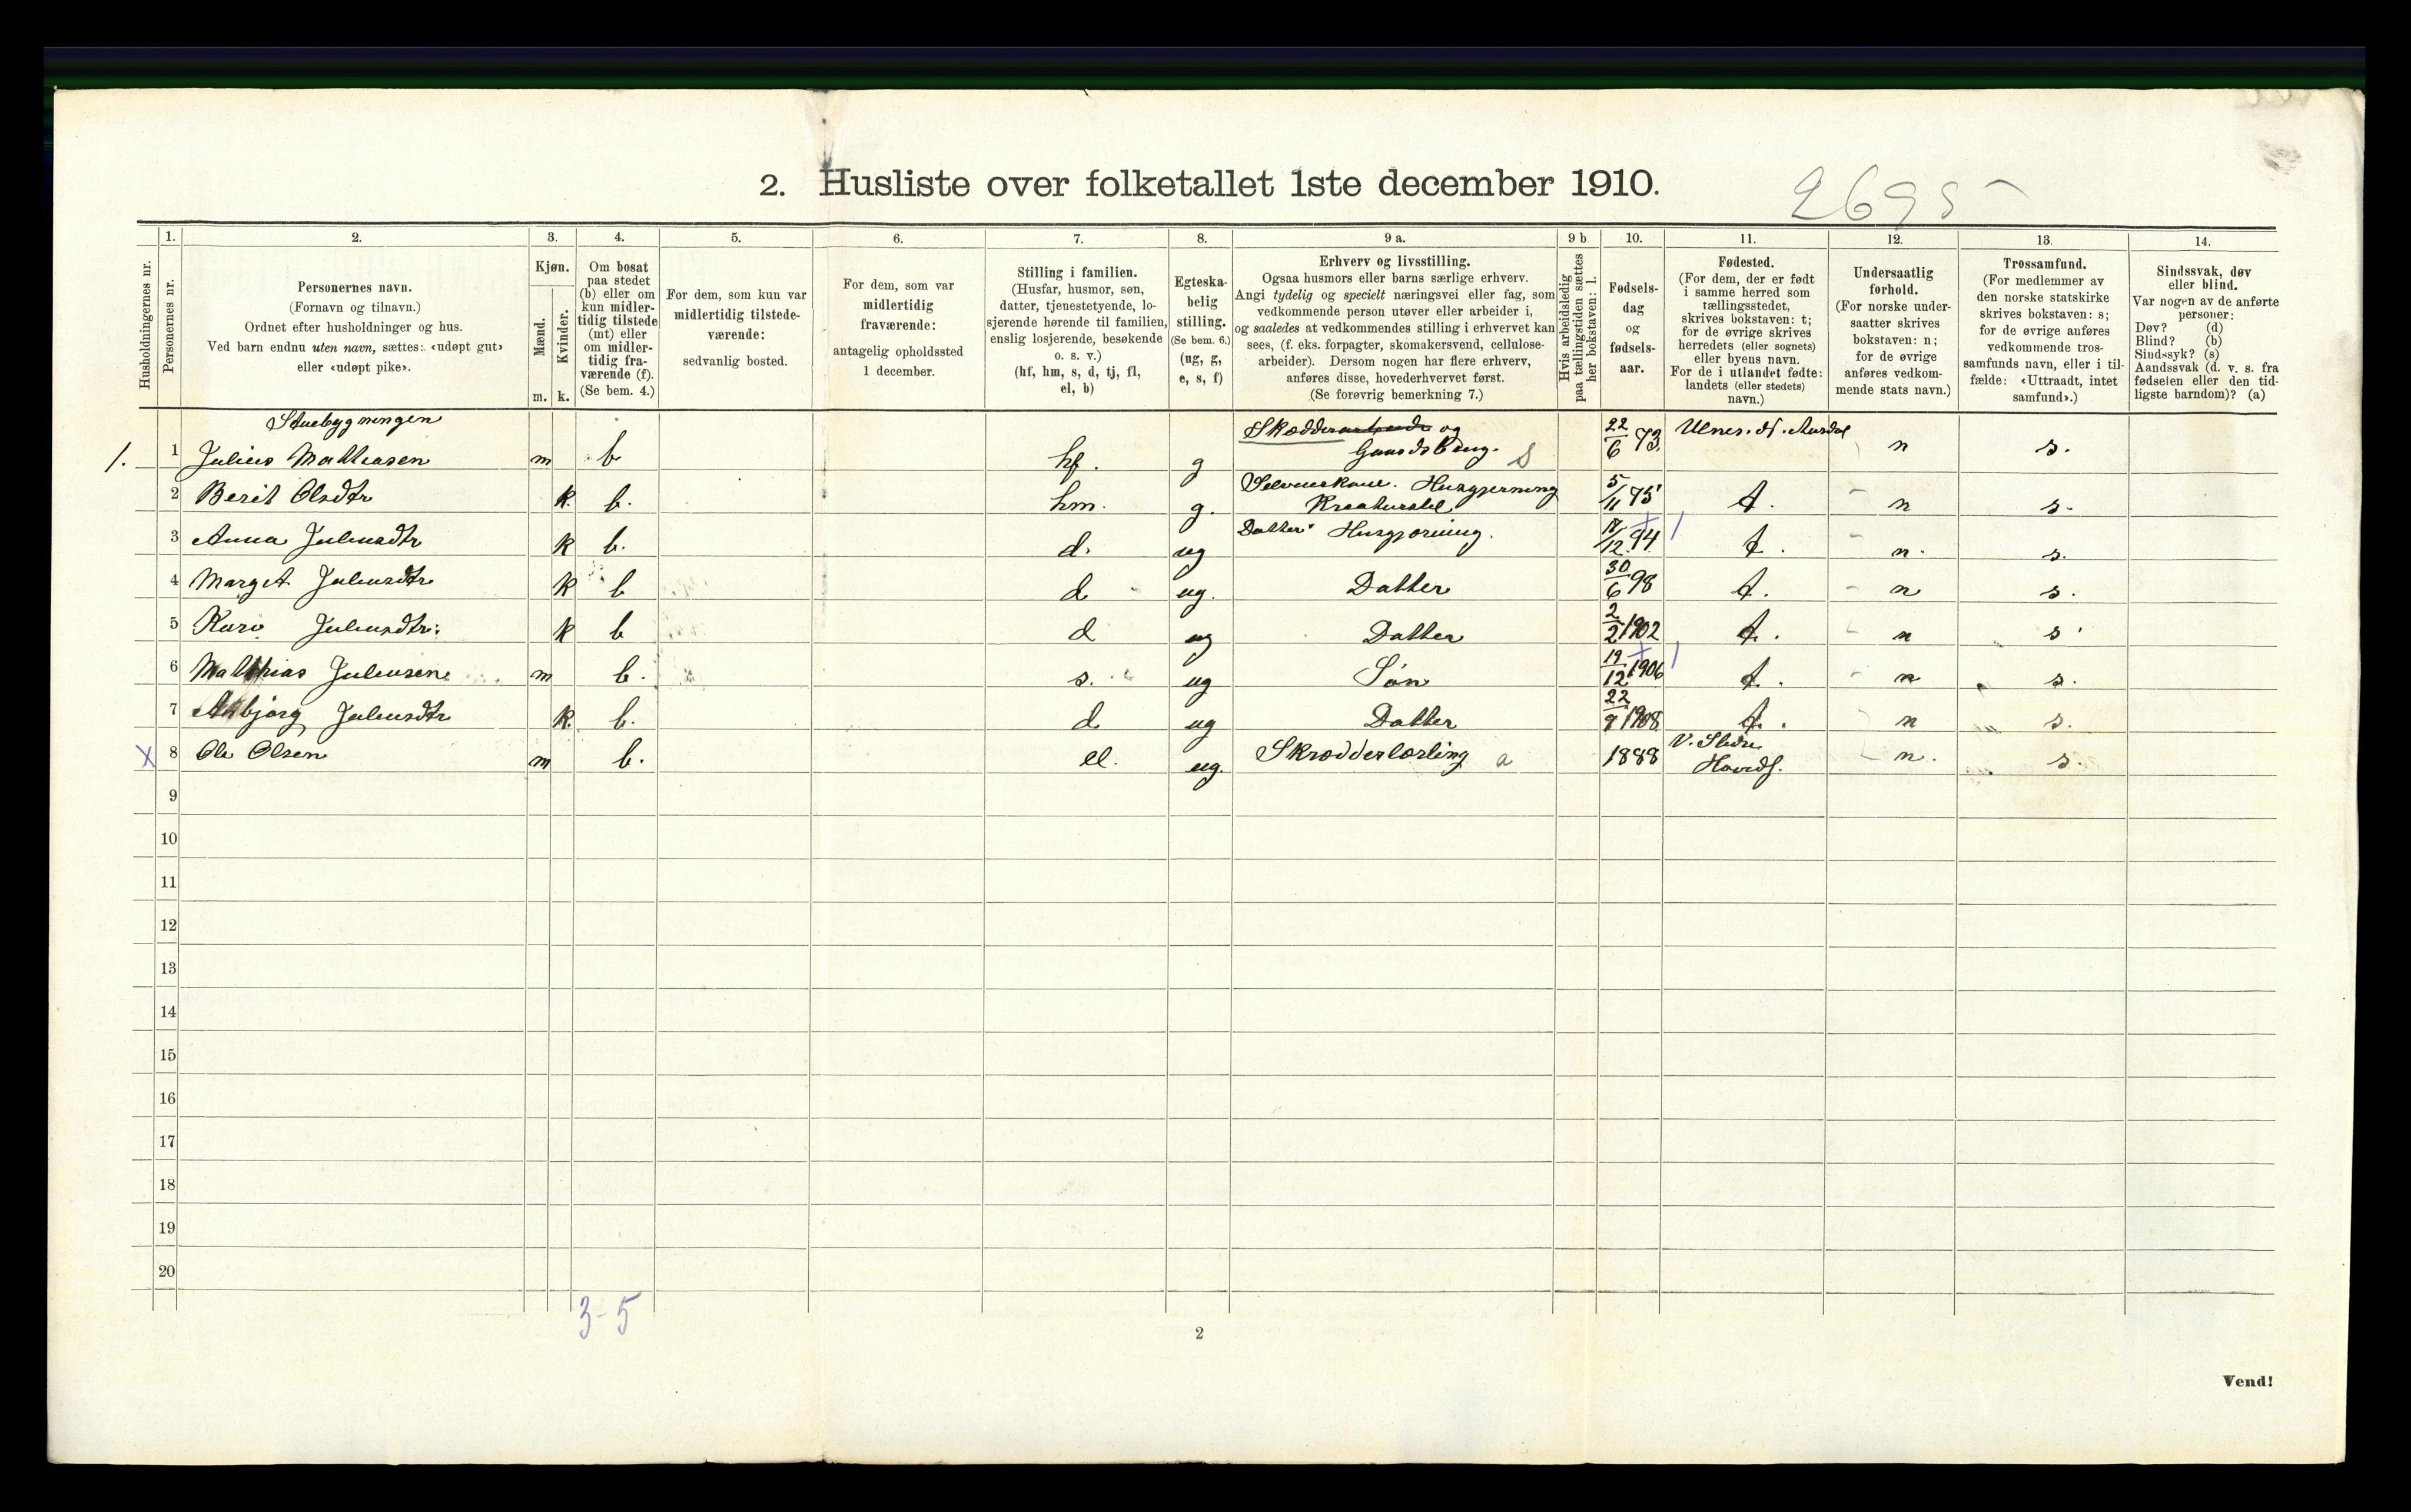 2. Husliste over folketallet 1ste december 1910.
2695
Husholdningernes nr.
1.
Personernes nr.
2.
Personernes navn.
(Fornavn og tilnavn.)
Ordnet efter husholdninger og hus.
Ved barn endnu uten navn, sættes: «udøpt gut»
eller «udøpt pike».
3.
Kjøn.
Mænd.
Kvinder.
m. k.
4.
Om bosat
paa stedet
(b) eller om
kun midler-
tidig tilstede
(mt) eller
om midler-
tidig fra-
værende (f).
(Se bem. 4.)
5.
For dem, som kun var
midlertidig tilstede-
værende:
sedvanlig bosted.
6.
For dem, som var
midlertidig
fraværende:
antagelig opholdssted
1 december.
7.
Stilling i familien.
(Husfar, husmor, søn,
datter, tjenestetyende, lo-
sjerende hørende til familien,
enslig losjerende, besøkende
o. s. v.)
(hf, hm, s, d, tj, fl,
el, b)
8.
Egteska-
belig
stilling.
(Se bem. 6.)
(ug, g,
e, s, f)
9 a.
Erhverv og livsstilling.
Ogsaa husmors eller barns særlige erhverv.
Angi tydelig og specielt næringsvei eller fag, som
vedkommende person utøver eller arbeider i,
og saaledes at vedkommendes stilling i erhvervet kan
sees, (f. eks. forpagter, skomakersvend, cellulose-
arbeider). Dersom nogen har flere erhverv,
anføres disse, hovederhvervet først.
(Se forøvrig bemerkning 7.)
9 b
Hvis arbeidsledig
paa tællingstiden sættes
her bokstaven: l.
10.
Fødsels-
dag
og
fødsels-
aar.
11.
Fødested.
(For dem, der er født
i samme herred som
tællingsstedet,
skrives bokstaven: t;
for de øvrige skrives
herredets (eller sognets)
eller byens navn.
For de i utlandet fødte:
landets (eller stedets)
navn.)
12.
Undersaatlig
forhold.
(For norske under-
saatter skrives
bokstaven: n;
for de øvrige
anføres vedkom-
mende stats navn.)
13.
Trossamfund.
(For medlemmer av
den norske statskirke
skrives bokstaven: s;
for de øvrige anføres
vedkommende tros-
samfunds navn, eller i til-
fælde: «Uttraadt, intet
samfund».)
14.
Sindssvak, døv
eller blind.
Var nogen av de anførte
personer:
Døv? (d)
Blind? (b)
Sindssyk? (s)
Aandssvak (d. v. s. fra
fødselen eller den tid-
ligste barndom)? (a)
Stuebygningen
1. 1 Julius Mathiasen m b hf. g Skrædderarbeide og Gaardsbrug. S 22/6 73. Ulnes. N. Aurdal n s.
2 Berit Olsdtr k. b. hm. g. Husgjerning Kreaturstel 5/11 75 t. n s.
3 Anna Juliusdtr k b. d. ug Datter Husgjerning. 17/12 94 t. n. s.
4 Marget Juliusdtr k b d ug. Datter 30/6 98 t. n s.
5 Kari Juliusdtr. k b d ug Datter 2/2 1902 t. n s
6 Mathias Juliusen m b. s. ug Søn 19/12 1906 t. n s.
7 Asbjørg Juliusdtr k. b. d ug Datter 22/9 1908 t. n s.
X 8 Ole Olsen m b. el. ug. Skrædderlærling a 1888 V. Slidre n. s.
9
10
11
12
13
14
15
16
17
18
19
20
3-5
2
Vend!